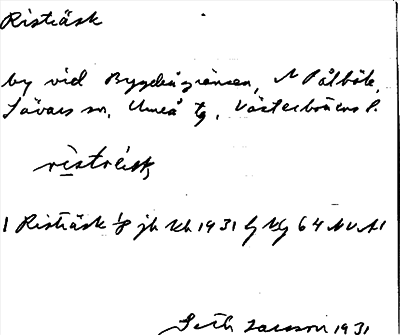 Risträsk
by vid Bygdeågränsen, N Pålböle,
Sävars sn, Umeå tg, Västerbottens l.
ristrèisk
1 Risträsk 1/8 jb kb 1931 6 64
Seth Larsson 1931